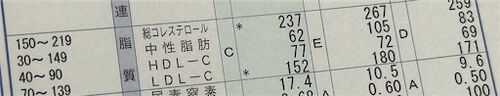 連 259
150〜219 総コレステロール * 237 267 83
30〜149 脂 中性脂肪 62 105 D 69
40〜90 HDL-C C 77 E 72 171
70〜139 質 LDL-C * 152 180 9.6
尿素窒素 17.4 10.5 0.50
0.60 A 100